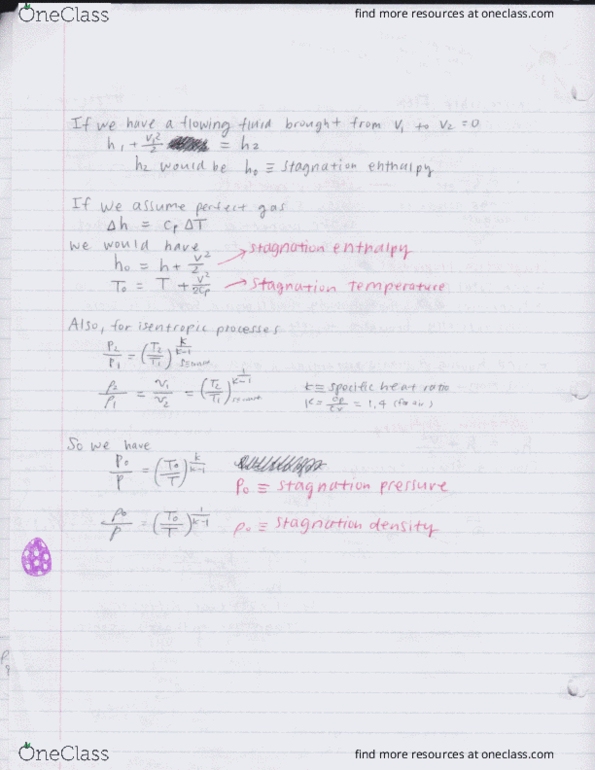 OneClass
find more resources at oneclass.com
If we have a flowing fluid brought from V₁ to V₂ = 0
h₁ + V₁²/2 = h₂
h₂ would be h₀ ≡ stagnation enthalpy
If we assume perfect gas
Δh = Cp ΔT
we would have
h₀ = h + V²/2 → stagnation enthalpy
T₀ = T + V²/2Cp → Stagnation temperature
Also, for isentropic processes
P₂/P₁ = (T₂/T₁)^(k/(k-1))
ρ₂/ρ₁ = v₁/v₂ = (T₂/T₁)^(1/(k-1)) k ≡ specific heat ratio
= 1.4
So we have
P₀/P = (T₀/T)^(k/(k-1))
P₀ ≡ stagnation pressure
ρ₀/ρ = (T₀/T)^(1/(k-1)) ρ₀ ≡ stagnation density
OneClass
find more resources at oneclass.com